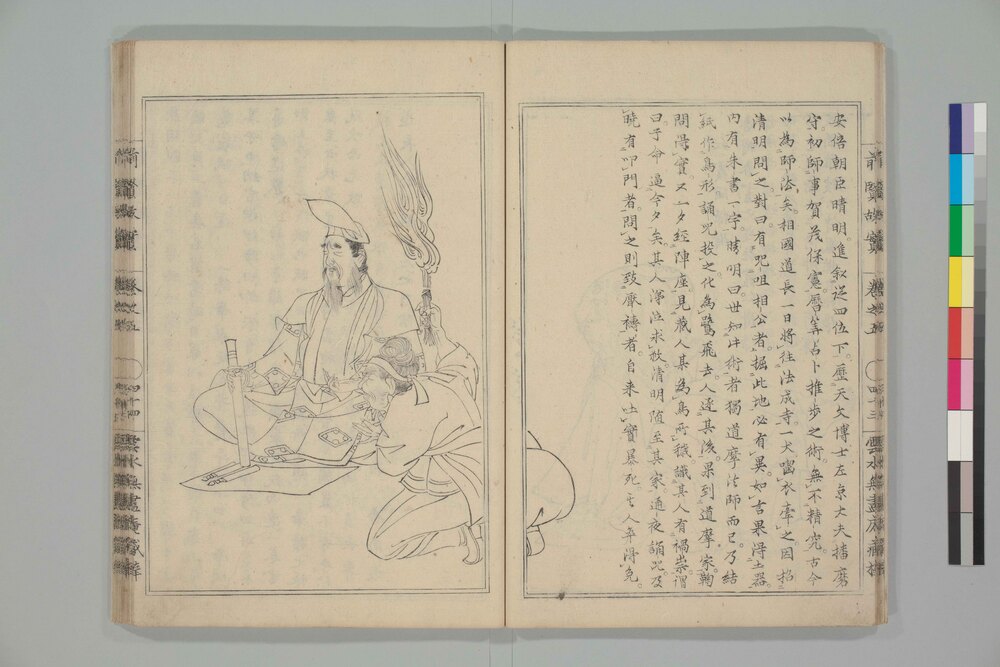 安倍朝臣晴明進叙従四位下歴天文博士左京大夫播磨
守初師事賀茂保憲暦算占卜推歩之術無不精究古今
以為師法矣相國道長一日將往法成寺一犬嚙衣牽之因招
清明問之對曰有咒咀相公者掘此地必有異如言果得土器
内有朱書一字晴明曰世知此術者獨道摩法師而已乃結
紙作鳥形誦咒投之化為鷺飛去人逐其後果到道摩家鞠
問得實又一夕經陣座見蔵人某為鳥所穢識其人有禍祟謂
曰子命逼今夕矣其人涕泣求救清明随至其家通夜誦咒及
曉有叩門者問之則致厭禱者自来吐實暴死其人卒得免
前賢故實
巻之五
四十三
前賢故實
巻之五
四十四